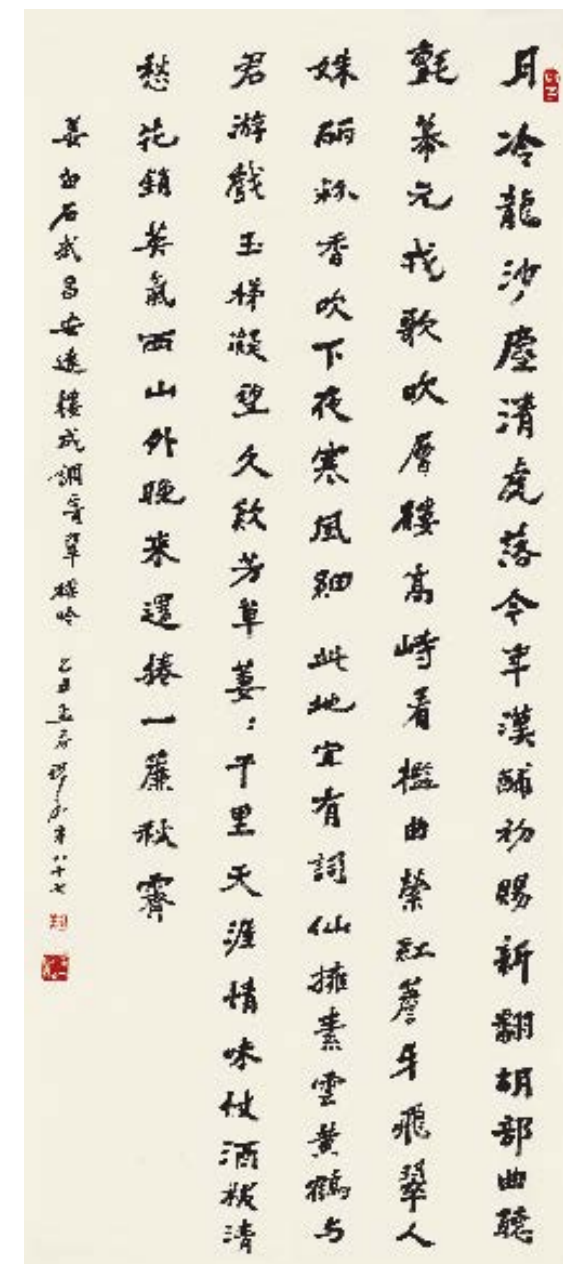 月冷龍沙塵清虎落今年漢酺初賜新翻胡部曲聽
氈幕元戎歌吹層樓高峙看檻曲縈紅簷牙飛翠人
姝麗粉香吹下夜寒風細 此地宜有詞仙擁素雲黃鶴与
君游戲玉梯凝望久歎芳草萋：千里天涯情味仗酒祓清
愁花銷英氣西山外晚来還捲一簾秋霽
姜白石武昌安遠樓成調寄翠樓吟 乙丑孟春 年八十七